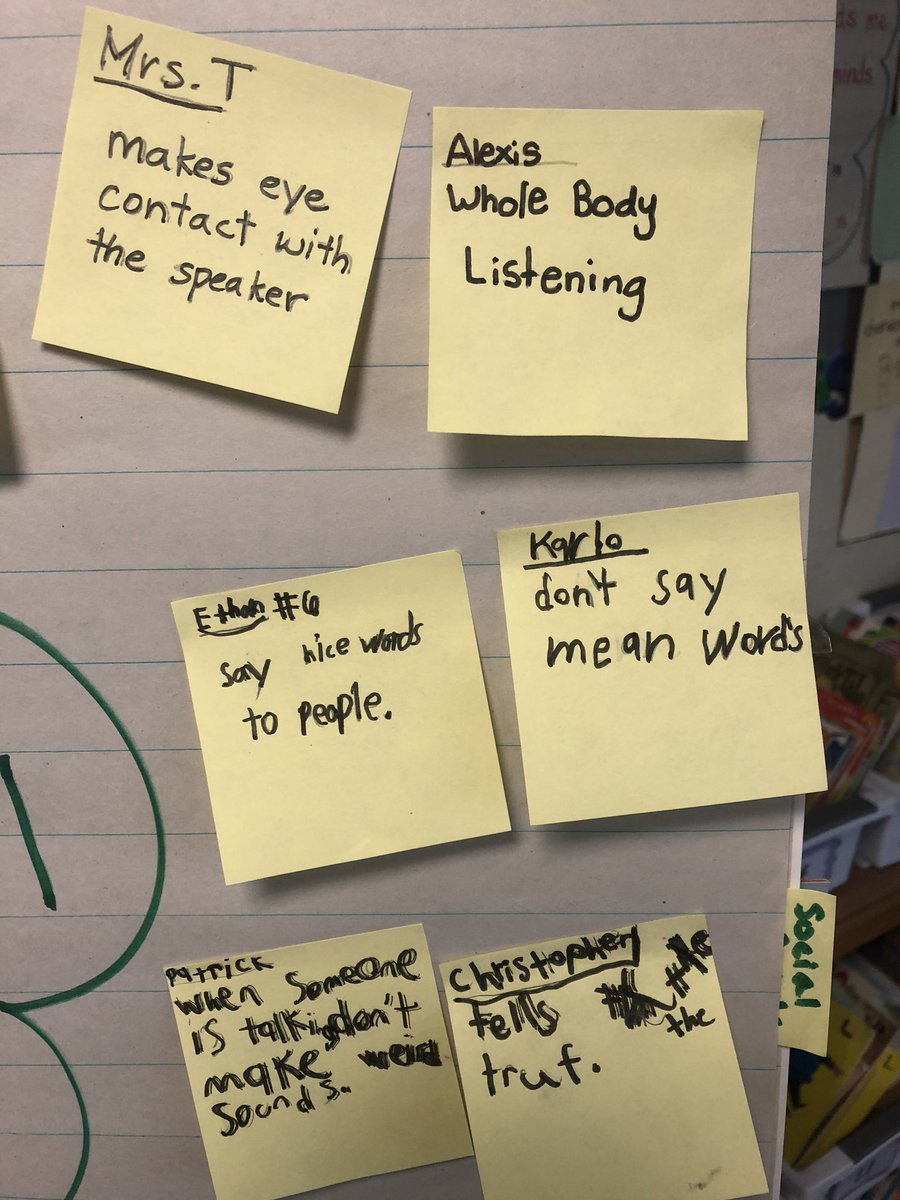 Mrs. T
makes eye
contact with
the speaker
Alexis
Whole Body
Listening
Ethan #6
say nice words
to people.
Karlo
don't say
mean words
Patrick
when someone
is talking don't
make weird
sounds.
Christopher
tells the
truf.
Social